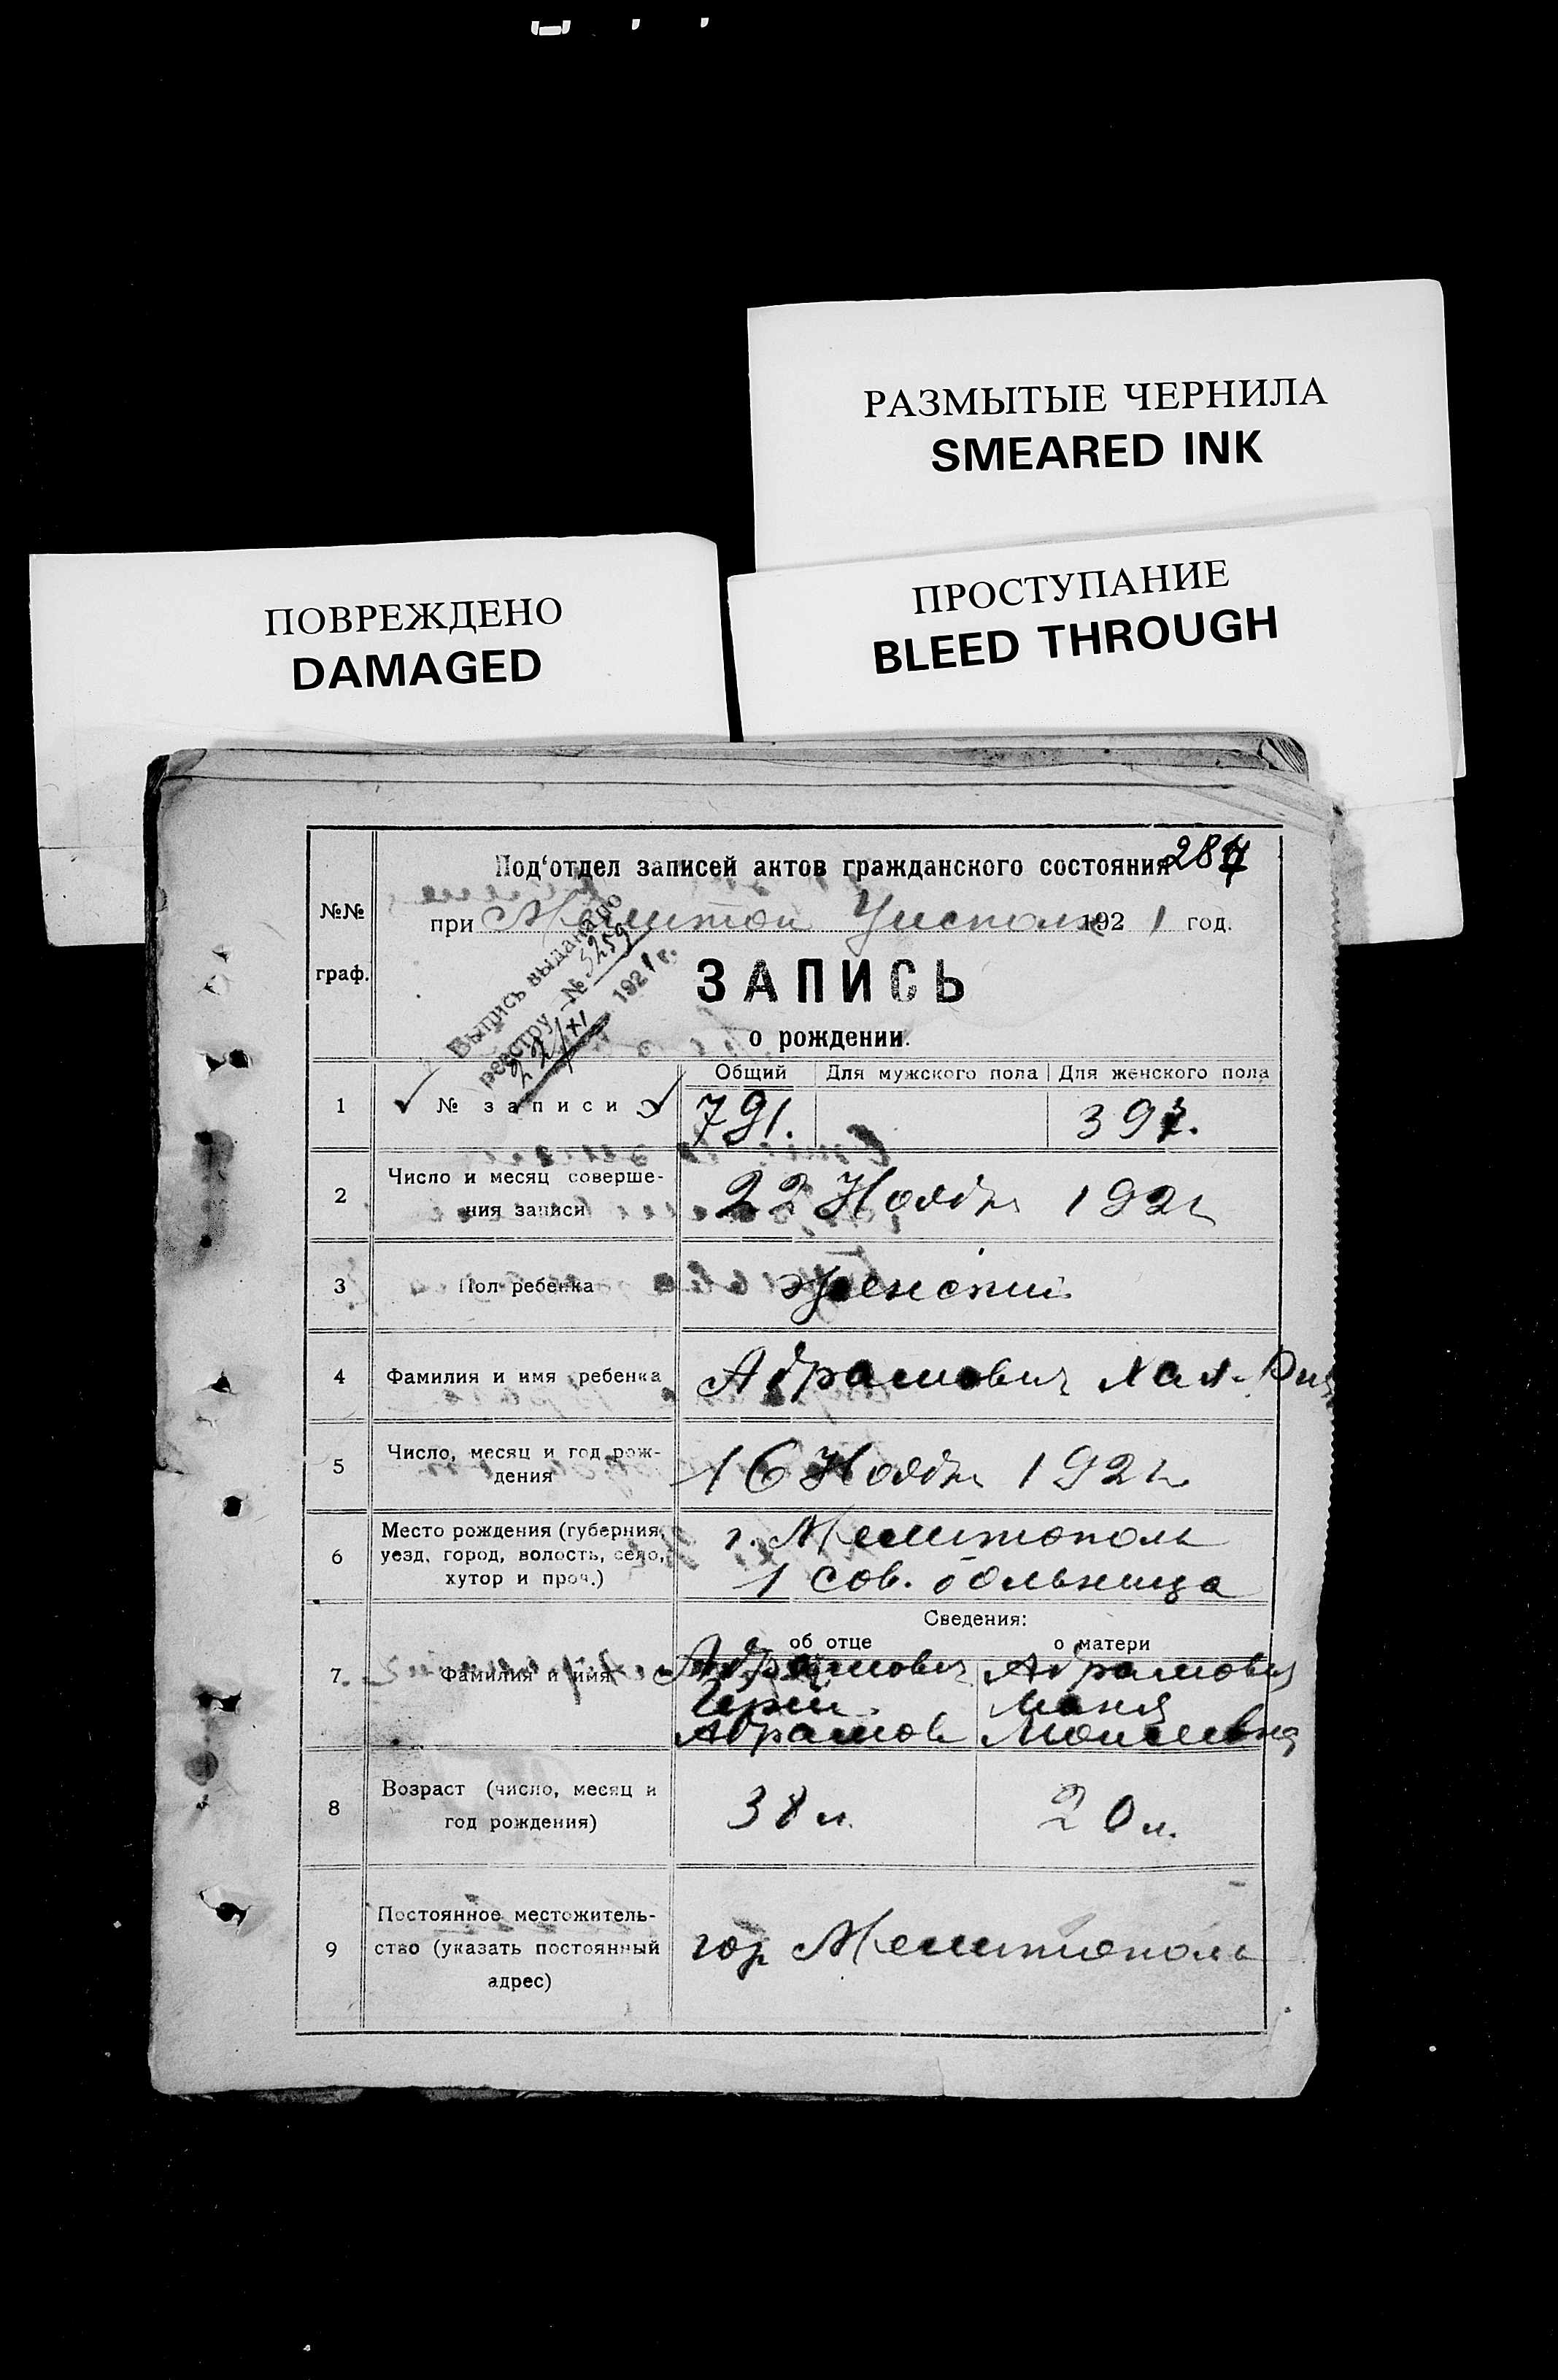 РАЗМЫТЫЕ ЧЕРНИЛА
SMEARED INK
ПРОСТУПАНИЕ
BLEED THROUGH
ПОВРЕЖДЕНО
DAMAGED
Под'отдел записей актов гражданского состояния
№№ граф.
при Мелитоп Уисполк 1921 год.
Выпись выдана по
реестру № 5259
22/XI 1921 г.
ЗАПИСЬ
о рождении.
Общий Для мужского пола Для женского пола
1 № записи 791. 393.
2 Число и месяц соверше-
ния записи 22 Ноябр 1921
3 Пол ребенка женский
4 Фамилия и имя ребенка Абрамович Хая-
5 Число, месяц и год рож-
дения 16 Ноябр 1921
6 Место рождения (губерния,
уезд, город, волость, село,
хутор и проч.)
г. Мелитополь
1 сов. больница
Сведения:
об отце о матери
7. Фамилия и имя Абрамович Абрамович
Герш Маня
Абрамов Моисеевна
8 Возраст (число, месяц и
год рождения) 38 л. 20 л.
9 Постоянное местожитель-
ство (указать постоянный
адрес)
гор Мелитополь